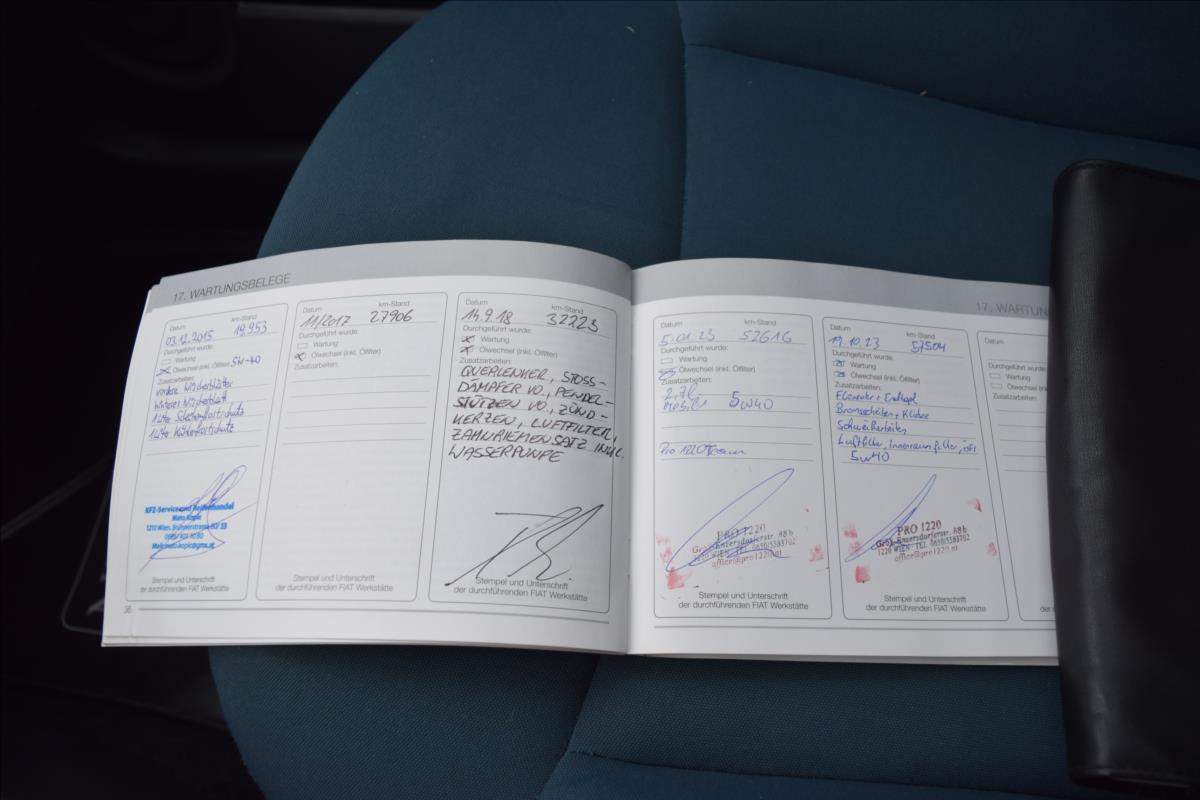 17. WARTUNGSBELEGE
Datum km-Stand
03.12.2015 19.953
Durchgeführt wurde:
Wartung
Ölwechsel (inkl. Ölfilter) 5W-40
Zusatzarbeiten:
vordere Wischerblätter
hinteres Wischerblatt
1 Liter Scheibenfrostschutz
1 Liter Kühlerfrostschutz
KFZ-Service und Reifenhandel
1210 Wien
Stempel und Unterschrift
der durchführenden FIAT Werkstätte
36
Datum km-Stand
11/2017 27906
Durchgeführt wurde:
Wartung
Ölwechsel (inkl. Ölfilter)
Zusatzarbeiten:
Stempel und Unterschrift
der durchführenden FIAT Werkstätte
Datum km-Stand
14.9.18 32223
Durchgeführt wurde:
Wartung
Ölwechsel (inkl. Ölfilter)
Zusatzarbeiten:
QUERLENKER, STOSS-
DÄMPFER VO., PENDEL-
STÜTZEN VO., ZÜND-
KERZEN, LUFTFILTER,
ZAHNRIEMENSATZ INKL.
WASSERPUMPE
Stempel und Unterschrift
der durchführenden FIAT Werkstätte
17. WARTUN
Datum km-Stand
5.01.23 52616
Durchgeführt wurde:
Wartung
Ölwechsel (inkl. Ölfilter)
Zusatzarbeiten:
5W40
PRO 1220
Groß Enzersdorferstr. 88b
1220 WIEN TEL 0650/5583702
office@pro1220.at
Stempel und Unterschrift
der durchführenden FIAT Werkstätte
Datum km-Stand
19.10.23 57504
Durchgeführt wurde:
Wartung
Ölwechsel (inkl. Ölfilter)
Zusatzarbeiten:
Bremsscheiben + Klötze
Schweißarbeiten
Luftfilter, Innenraumfilter, Öfi
5W40
PRO 1220
Groß Enzersdorferstr. 88b
1220 WIEN TEL 0650/5583702
office@pro1220.at
Stempel und Unterschrift
der durchführenden FIAT Werkstätte
Datum
Durchgeführt wurde:
Wartung
Ölwechsel (inkl.
Zusatzarbeiten: